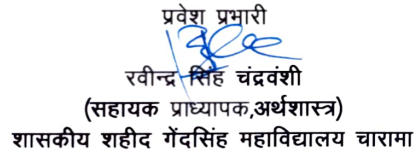 प्रवेश प्रभारी
रवीन्द्र सिंह चंद्रवंशी
(सहायक प्राध्यापक,अर्थशास्त्र)
शासकीय शहीद गेंदसिंह महाविद्यालय चारामा